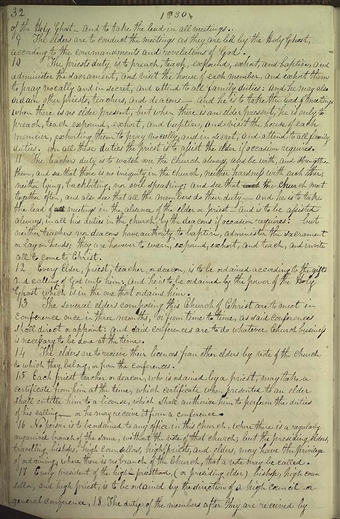 32 1830.
of the Holy Ghost— and to take the lead in all meetings.
9 The elders are to conduct the meetings as they are led by the Holy Ghost,
according to the commandments and revelations of God.
10 The priests duty is to preach, teach, expound, exhort, and baptize, and
administer the sacrament, and visit the house of each member, and exhort them
to pray vocally and in secret, and attend to all family duties: And he may also
ordain other priests, teachers, and deacons— And he is to take the lead of meetings
when there is no elder present, but when there is an elder present, he is only to
preach, teach, expound, exhort, and baptize, and visit the house of each
member, exhorting them to pray vocally, and in secret, and attend to all family
duties. In all these duties the priest is to assist the elder if occasion requires.
11 The teachers duty is to watch over the church always, and be with, and strengthen
them, and see that there is no iniquity in the church, neither hardness with each other
neither lying, backbiting, nor evil speaking; and see that the church meet
together often, and also see that all the members do their duty— And he is to take
the lead of meetings in the absence of the elder or priest— and is to be assisted
always, in all his duties in the church, by the deacons if occasion requires: but
neither teachers nor deacons have authority to baptize, administer the sacrament
or lay on hands; they are however to warn, expound, exhort, and teach, and invite
all to come to Christ.
12 Every elder, priest, teacher, or deacon, is to be ordained according to the gifts
and calling of God unto him; and he is to be ordained by the power of the Holy
Ghost which is in the one that ordains him.
13 The several elders composing this Church of Christ are to meet in
conference once in three months, or from time to time, as said conferences
shall direct or appoint: and said conferences are to do whatever Church business
is necessary to be done at the time.
14 The elders are to receive their licenses from other elders by vote of the Church
to which they belong, or from the conferences.
15 Each priest teacher or deacon, who is ordained by a priest, may take a
certificate from him at the time, which certificate when presented to an elder
shall entitle him to a license, which shall authorize him to perform the duties
of his calling— or he may receive it from a conference.
16 No person is to be ordained to any office in this church, where there is a regularly
organized branch of the same, without the vote of that church; but the presiding elders,
travelling bishops, high counsellors, high priests, and elders, may have the privilege
of ordaining, where there is no branch of the church, that a vote may be called.
17 Every president of the high priesthood, (or presiding elder) bishop, high coun-
sellor, and high priest, is to be ordained by the direction of a high council or
general conference. 18 The duty of the members after they are received by